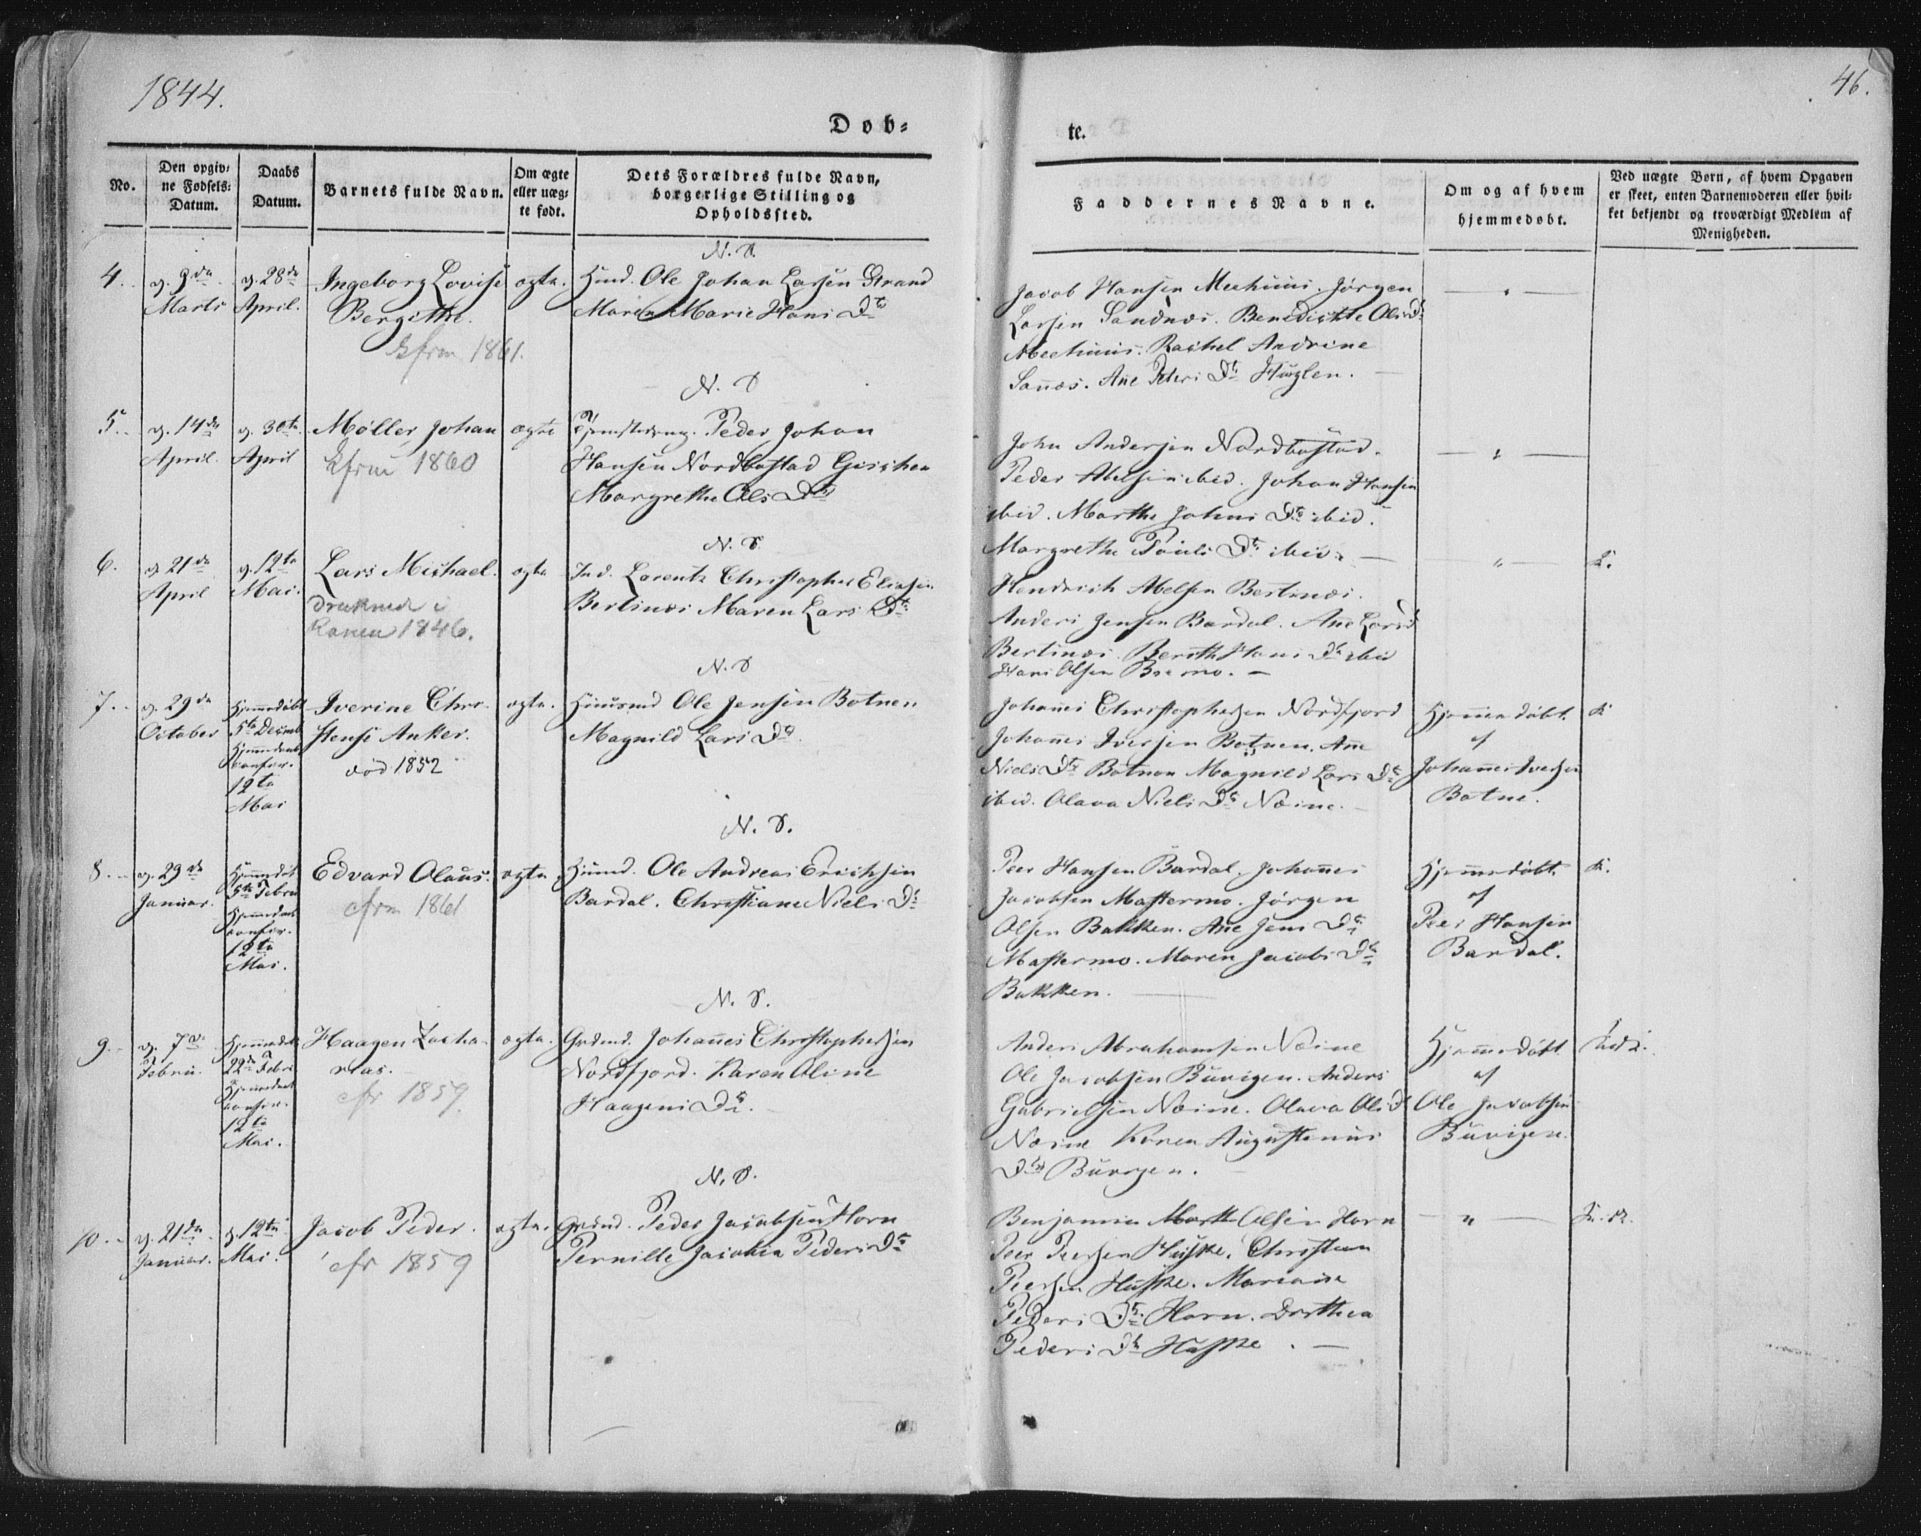 1844.
46.
Døb-
te.
No.
Den opgiv-
ne Fødsels-
Datum.
Daabs
Datum.
Barnets fulde Navn.
Om ægte
eller uæg-
te født.
Dets Forældres fulde Navn,
borgerlige Stilling og
Opholdssted.
Faddernes Navne.
Om og af hvem
hjemmedøbt.
Ved uægte Børn, af hvem Opgaven
er skeet, enten Barnemoderen eller hvil-
ket bekjendt og troværdigt Medlem af
Menigheden.
N. S.
4.
Marts
28de
April.
Ingeborg Lovise
Bergithe.
Cfrm 1861.
ægte.
Huusd. Ole Johan Larsen Strand
Maren Marie Hans Dtr
Jacob Hansen Jørgen
Larsen Sandnæs. Benedichte Olsd.
Rachel Andrine
Sanæs. Ane Peders Dtr Huglen.
N. S
5.
14de
April.
30te
April
Møller Johan
Cfrm 1860
ægte
Peder Johan
Hansen Nordbostad
Margrethe Ols Dtr
John Andersen Nordbostad.
Peder Abelsen ibid. Johan Hansen
ibid. Marthe Johns Dtr ibid.
Margrethe Pouls Dtr ibid.
N. S
6.
21de
April
12te
Mai.
Lars Michael.
Druknet i
Ranen 1846.
ægte
Ind. Lorentz Christopher Eliasen
Bertnæs Maren Lars Dtr
Hendrich Abelsen Bertnæs.
Anders Jensen Bardal. Ane Larsd
Bertnæs. Berith Hans Dtr ibid
Hans Olsen Bremo.
N. S
7.
29de
October
Hjemmedøbt
5te Decemb
Hjemmedaab
confir.
12te
Mai
Iverine Chr-
stense Anker.
død 1852
ægte.
Huusmd Ole Jensen Botnen
Magnild Lars Dtr
Johannes Christophersen Nordfjord
Johannes Iversen Botnen. Ane
Niels Dtr Botnen Magnild Lars Dtr
ibid. Olava Niels Dtr Næine.
Hjemmedøbt.
af
Johannes Iversen
Botne.
N. S.
8.
29de
Januar.
Hjemmedøbt
5te Febru
Hjemmedaab
confir.
12te
Mai.
Edvard Olaus.
cfrm 1861
ægte
Huusmd. Ole Andreas Erichsen
Bardal. Christiane Niels Dtr
Peer Hansen Bardal. Johannes
Jacobsen Mastermo. Jørgen
Olsen Bakken. Ane Jens Dtr
Mastermo. Maren Jacobs Dtr
Bakken.
Hjemmedøbt.
af
Peer Hansen
Bardal.
N. S.
9.
7de
Febru.
Hjemmedøbt
22de Febr
Hjemmedaab
confir.
12te
Mai.
Haagen Zacha-
rias.
cfr 1859.
ægte.
Grdmd. Johannes Christophersen
Nordfjord. Karen Oline
Haagens Dtr.
Anders Abrahamsen Næine
Ole Jacobsen Buvigen. Anders
Gabrielsen Næine. Olava Ols D
Næine Karen Augustinus
Dtr Buvigen.
Hjemmedøbt
af
Ole Jacobsen
Buvigen.
N. S.
10.
21de
Januar.
12te
Mai.
Jacob Peder.
cfr 1859
ægte.
Grdmd. Peder Jacobsen Horn
Pernille Jacobea Peders Dtr
Benjamin Olsen Horn
Peer Peersen Huske. Christian
Peersen Huske. Mariane
Peders Dtr Horn. Dorthea
Peders Dtr Huske.